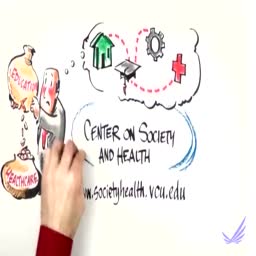 EDUCATION
HEALTHCARE
CENTER ON SOCIETY
AND HEALTH
www.societyhealth.vcu.edu